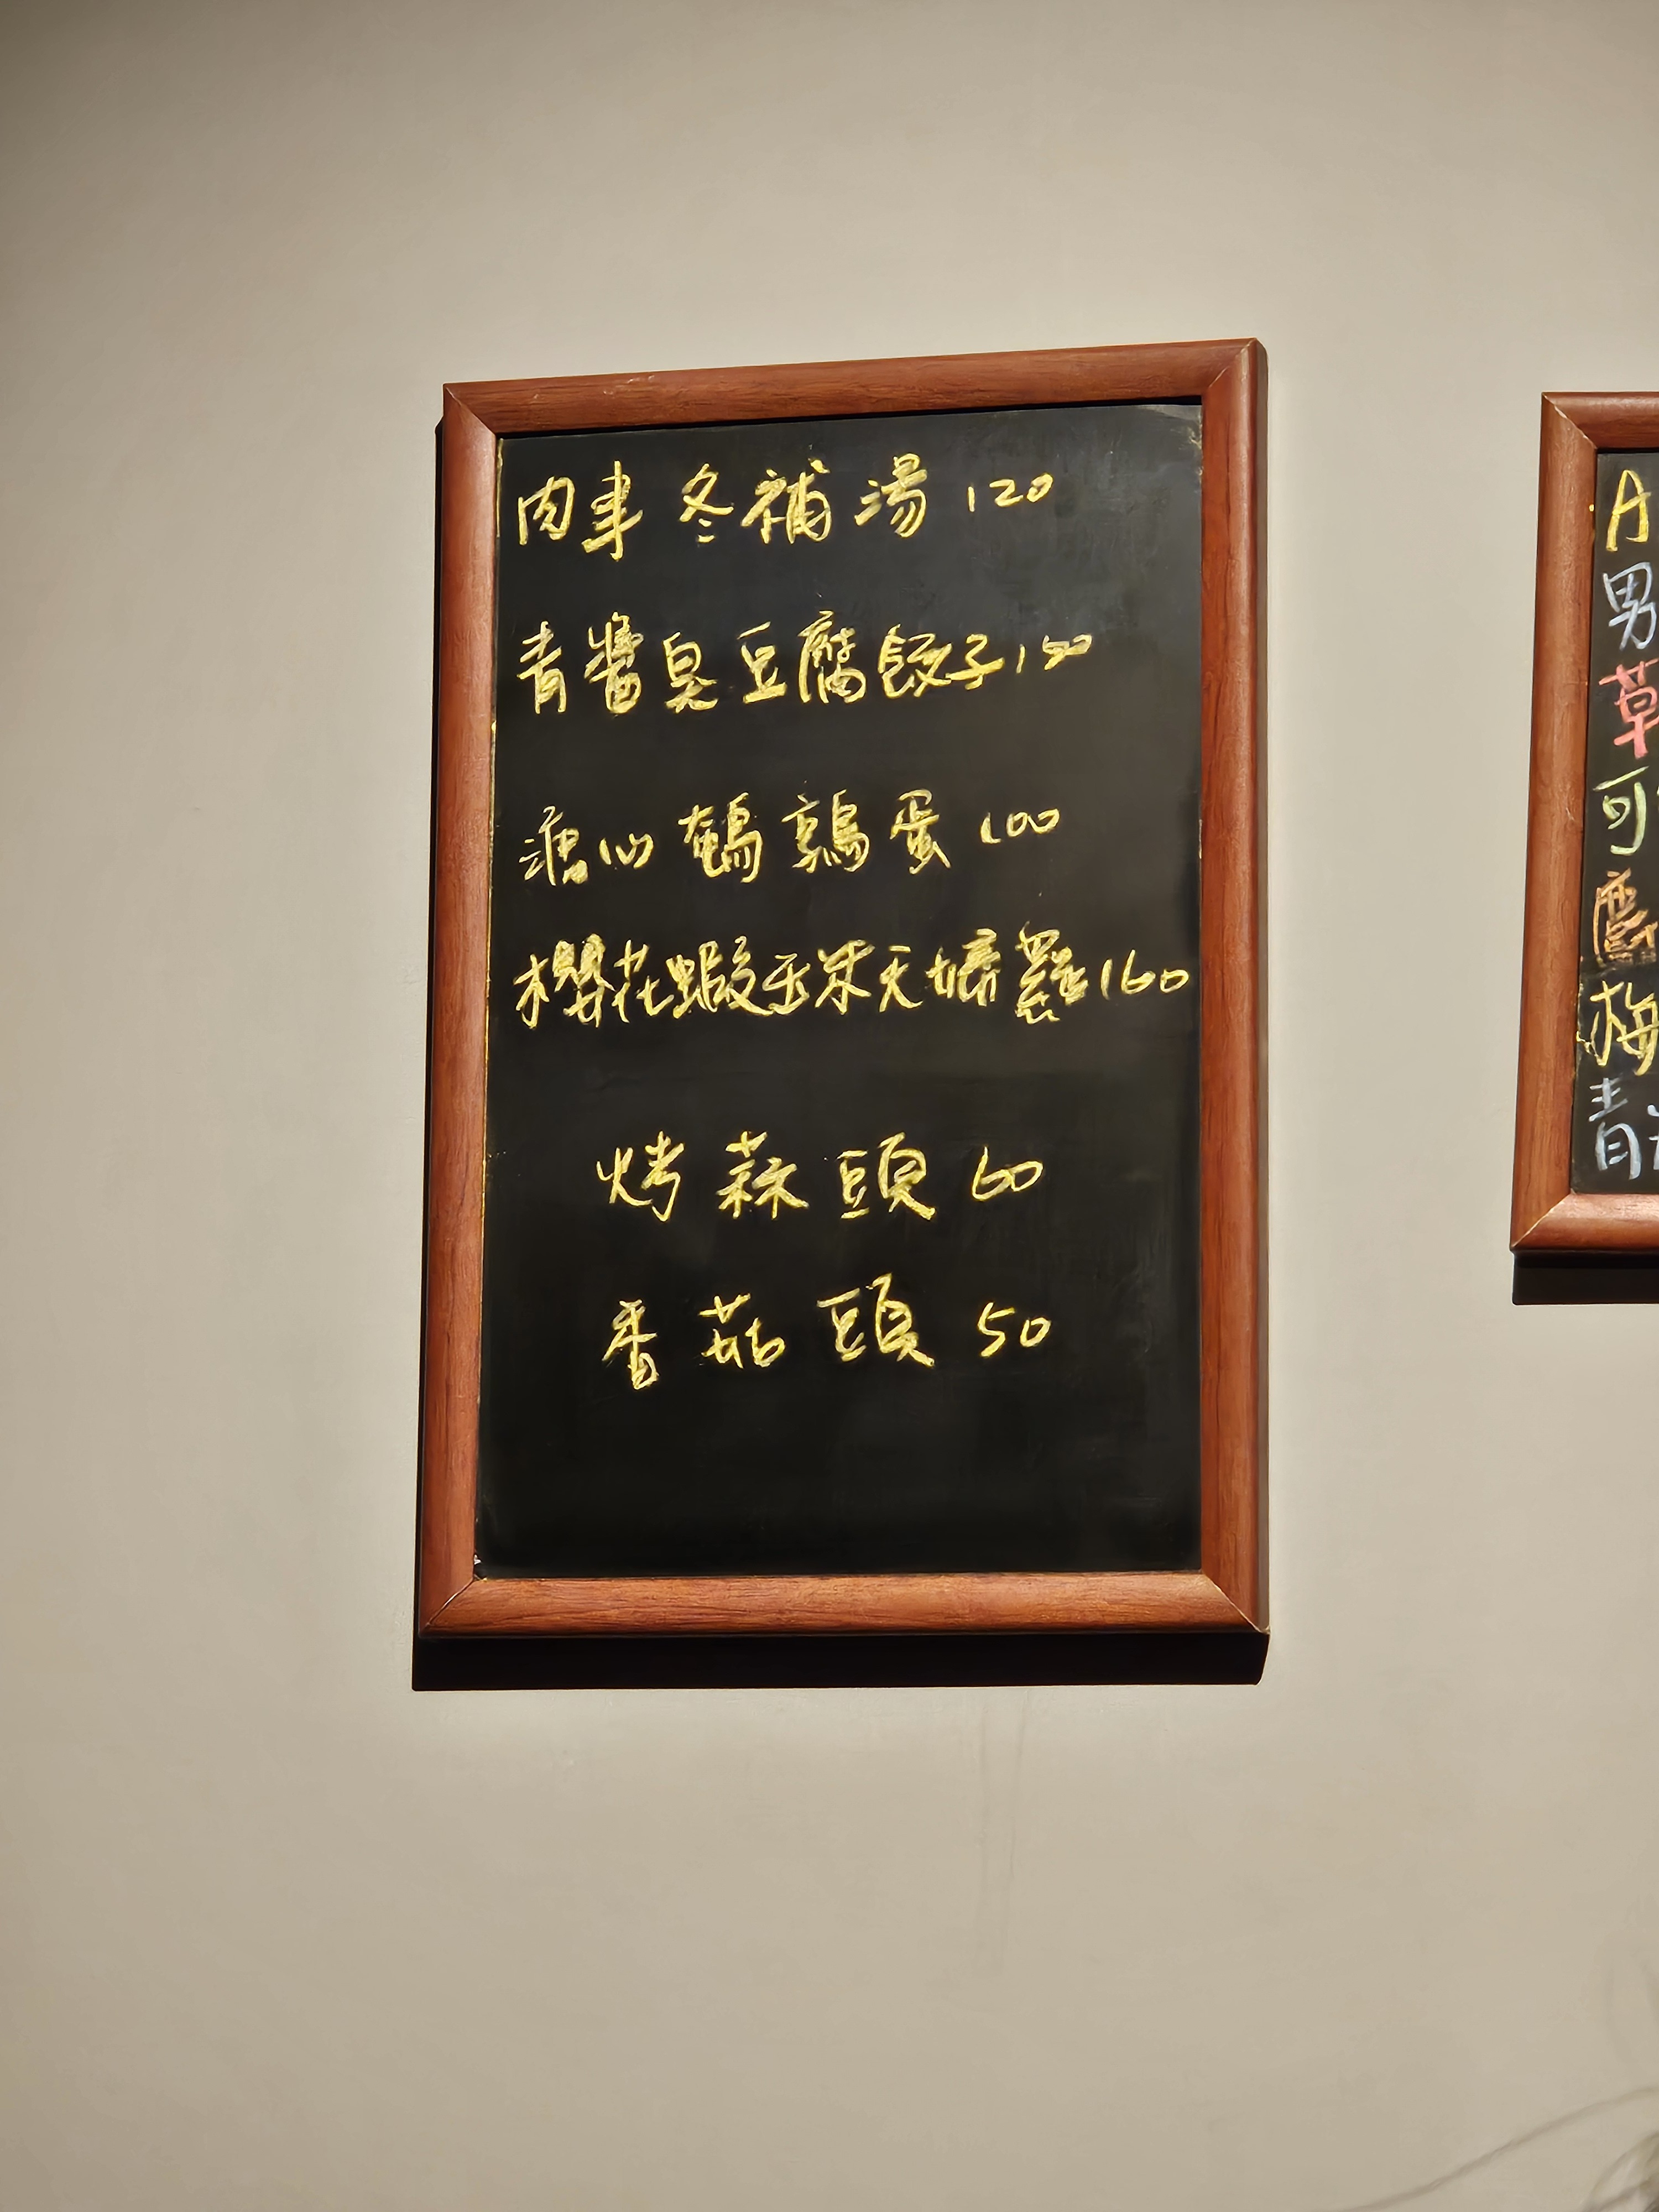 肉羊冬補湯 120
青醬臭豆腐餃子 150
溏心鵪鶉蛋 100
櫻花蝦玉米天婦羅 160
烤蒜頭 60
香菇頭 50
A
男
草
可
梅
青